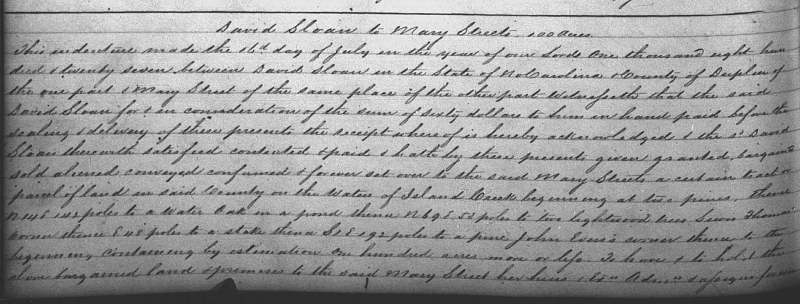 David Sloan to Mary Streets 100 Acres
This indenture made the 16th day of July in the year of our Lord One thousand eight hun
dred & twenty seven between David Sloan in the State of No Carolina & County of Duplin of
the one part & Mary Street of the same place of the other part Witnesseth that the said
David Sloan for & in consideration of the sum of sixty dollars to him in hand paid before the
sealing & delivery of these presents the receipt whereof is hereby acknowledged & the sd David
Sloan therewith satisfied contented & paid & hath by these presents given granted bargained
sold aliened conveyed confirmed & forever set over to the said Mary Streets a certain tract or
parcel of land in said County on the Waters of Island Creek beginning at two pines, thence
N 14 E 142 poles to a Water Oak in a pond thence N 69 E 52 poles to two lightwood trees Thomas
corner thence E 48 poles to a stake thence 192 poles to a pine John Evers's corner thence to the
beginning containing by estimation One hundred acres more or less To have & to hold the
above bargained land & premises to the said Mary Street her heirs Exrs Admrs & assigns forever